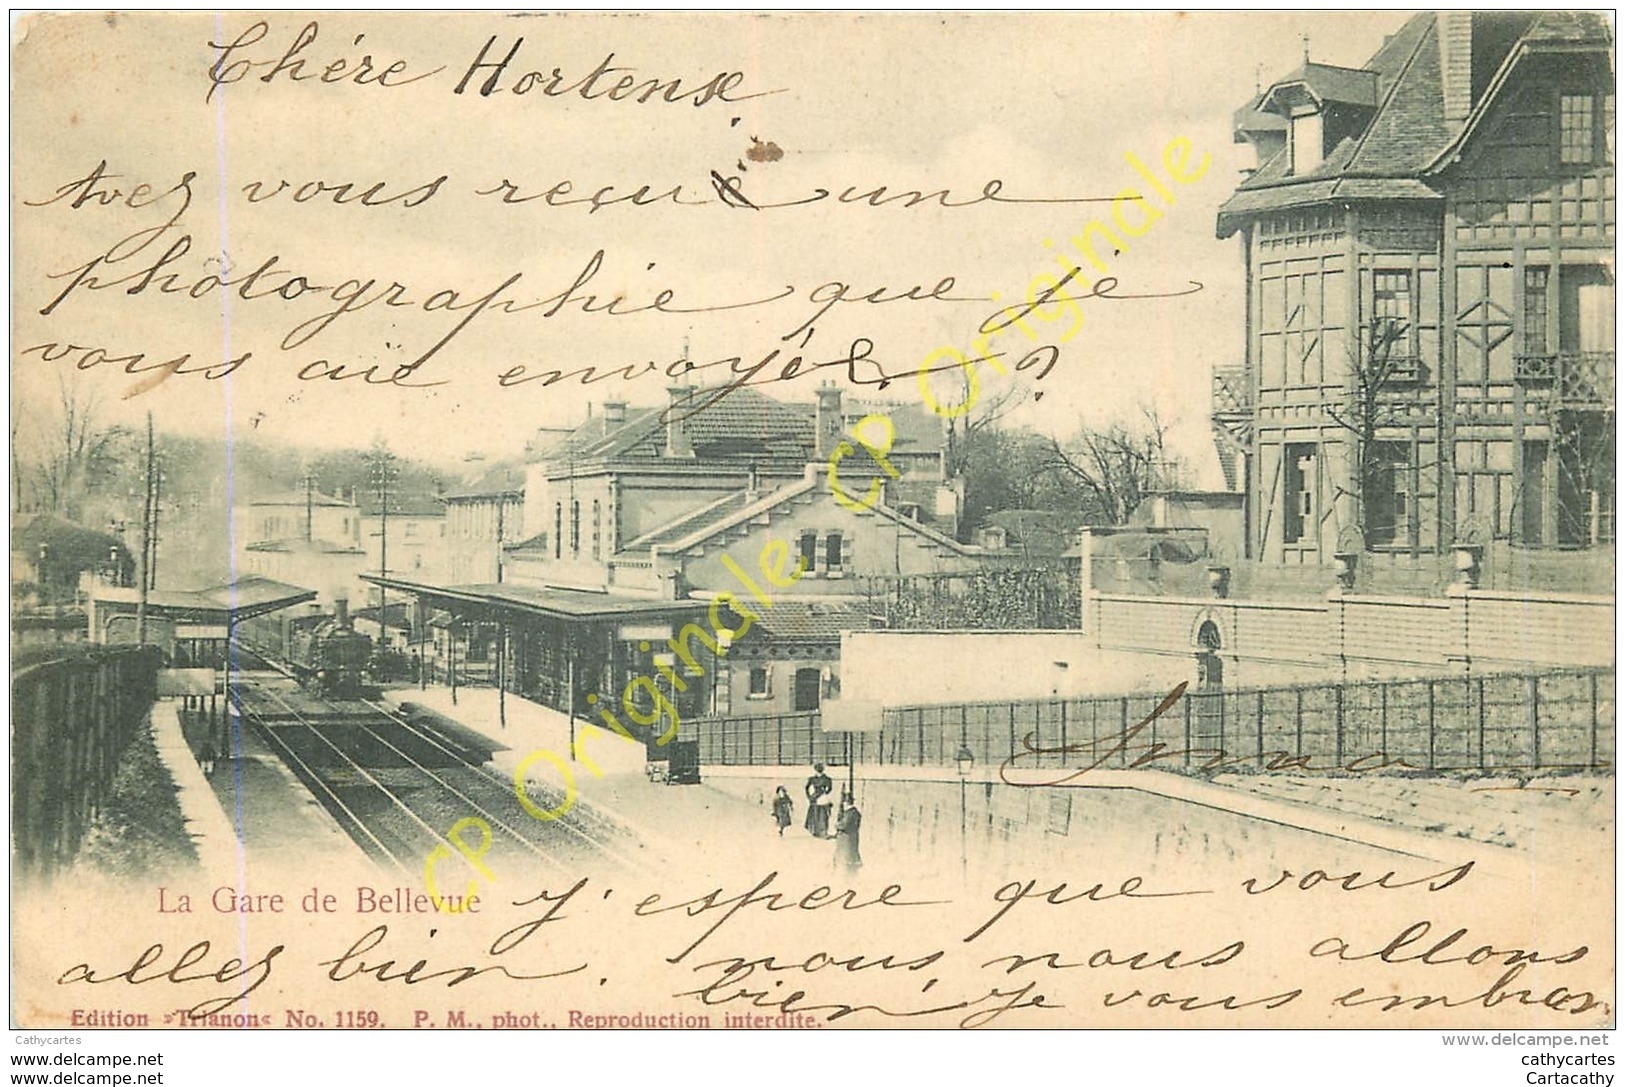 Chére Hortense
Avez vous reçue une
photographie que je
vous aie envoyée ?
La Gare de Bellevue
J'espere que vous
allez bien. nous nous allons
bien Je vous embras
Edition »Trianon« No. 1159. P. M., phot., Reproduction interdite.
CP Originale CP Originale CP Originale
Cathycartes
www.delcampe.net
www.delcampe.net
www.delcampe.net
cathycartes
Cartacathy